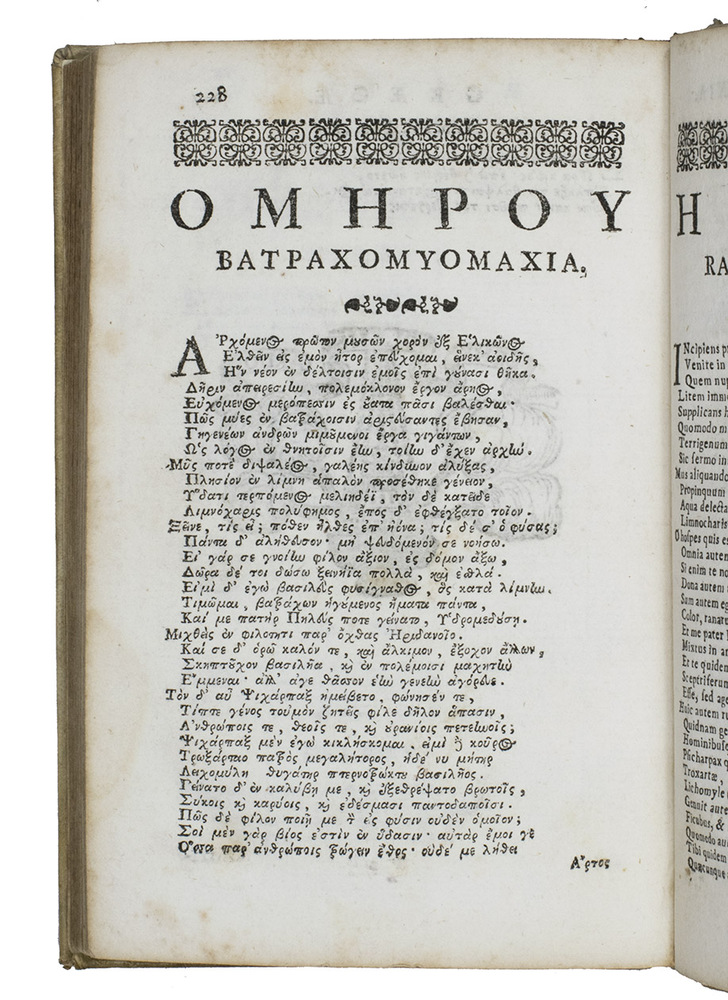 228
ΟΜΗΡΟΥ
ΒΑΤΡΑΧΟΜΥΟΜΑΧΙΑ.
ΑΡχόμενος πρῶτον μουσῶν χορὸν ἐξ Ἑλικῶνος
Ἐλθεῖν εἰς ἐμὸν ἦτορ ἐπεύχομαι, εἵνεκ' ἀοιδῆς,
Ἣν νέον ἐν δέλτοισιν ἐμοῖς ἐπὶ γούνασι θῆκα.
Δῆριν ἀπειρεσίην, πολεμόκλονον ἔργον ἄρηος,
Εὐχόμενος μερόπεσσιν ἐς οὔατα πᾶσι βαλέσθαι·
Πῶς μύες ἐν βατράχοισιν ἀριστεύσαντες ἔβησαν,
Γηγενέων ἀνδρῶν μιμούμενοι ἔργα γιγάντων,
Ὡς λόγος ἐν θνητοῖσιν ἔην, τοίην δ' ἔχεν ἀρχήν.
Μῦς ποτὲ διψαλέος, γαλέης κίνδυνον ἀλύξας,
Πλησίον ἐν λίμνῃ ἁπαλὸν προσέθηκε γένειον,
Ὕδατι τερπόμενος μελιηδέϊ, τὸν δὲ κατεῖδε
Λιμνόχαρις πολύφημος, ἔπος δ' ἐφθέγξατο τοῖον.
Ξεῖνε, τίς εἶ; πόθεν ἦλθες ἐπ' ἠϊόνα; τίς δέ σ' ὁ φύσας;
Πάντα δ' ἀλήθευσον· μὴ ψευδόμενόν σε νοήσω.
Εἰ γάρ σε γνοίην φίλον ἄξιον, ἐς δόμον ἄξω,
Δῶρα δέ τοι δώσω ξεινήϊα πολλὰ, καὶ ἐσθλά.
Εἰμὶ δ' ἐγὼ βασιλεὺς φυσίγναθος, ὃς κατὰ λίμνην.
Τιμῶμαι, βατράχων ἡγούμενος ἤματα πάντα,
Καί με πατὴρ Πηλεύς ποτε γείνατο, Ὑδρομεδούσῃ.
Μιχθεὶς ἐν φιλότητι παρ' ὄχθας Ἠριδανοῖο.
Καὶ σὲ δ' ὁρῶ καλόν τε, καὶ ἄλκιμον, ἔξοχον ἄλλων,
Σκηπτοῦχον βασιλῆα, καὶ ἐν πολέμοισι μαχητὴν
Ἔμμεναι· ἀλλ' ἄγε θᾶσσον ἑὴν γενεὴν ἀγόρευε.
Τὸν δ' αὖ Ψιχάρπαξ ἠμείβετο, φώνησέν τε,
Τίπτε γένος τοὐμὸν ζητεῖς φίλε δῆλον ἅπασιν,
Ἀνθρώποις τε, θεοῖς τε, καὶ οὐρανίοις πετεηνοῖς;
Ψιχάρπαξ μὲν ἐγὼ κικλήσκομαι. εἰμὶ δὲ κοῦρος
Τρωξάρταο πατρὸς μεγαλήτορος, ἡδέ νυ μήτηρ
Λειχομύλη θυγάτηρ πτερνοτρώκτου βασιλῆος.
Γείνατο δ' ἐν καλύβῃ με, καὶ ἐξεθρέψατο βρωτοῖς,
Σύκοις καὶ καρύοις, καὶ ἐδέσμασι παντοδαποῖσι.
Πῶς δὲ φίλον ποιῇ με τὸν ἐς φύσιν οὐδὲν ὁμοῖον;
Σοὶ μὲν γὰρ βίος ἐστὶν ἐν ὕδασιν· αὐτὰρ ἔμοι γε
Ὅσσα παρ' ἀνθρώποις τρώγειν ἔθος· οὐδέ με λήθει
Ἄρτος
Η
RA
INcipiens
Venite in
Quem
Litem
Supplicans
Quomodo
Terrigenum
Sic sermo in
Mus aliquando
Propinquum
Aqua delecta
Limnocharis
O hospes quis es
Omnia autem
Si enim te
Dona autem
Sum autem
Color,
Et me pater
Mixtus in
Et te quidem
Sceptriferum
Esse, sed age
Quidnam
Hominibus
Psicharpax
Troxartæ,
Lichomyle
Genuit
Ficubus, &
Quomodo
Tibi quidem
Quæcunque